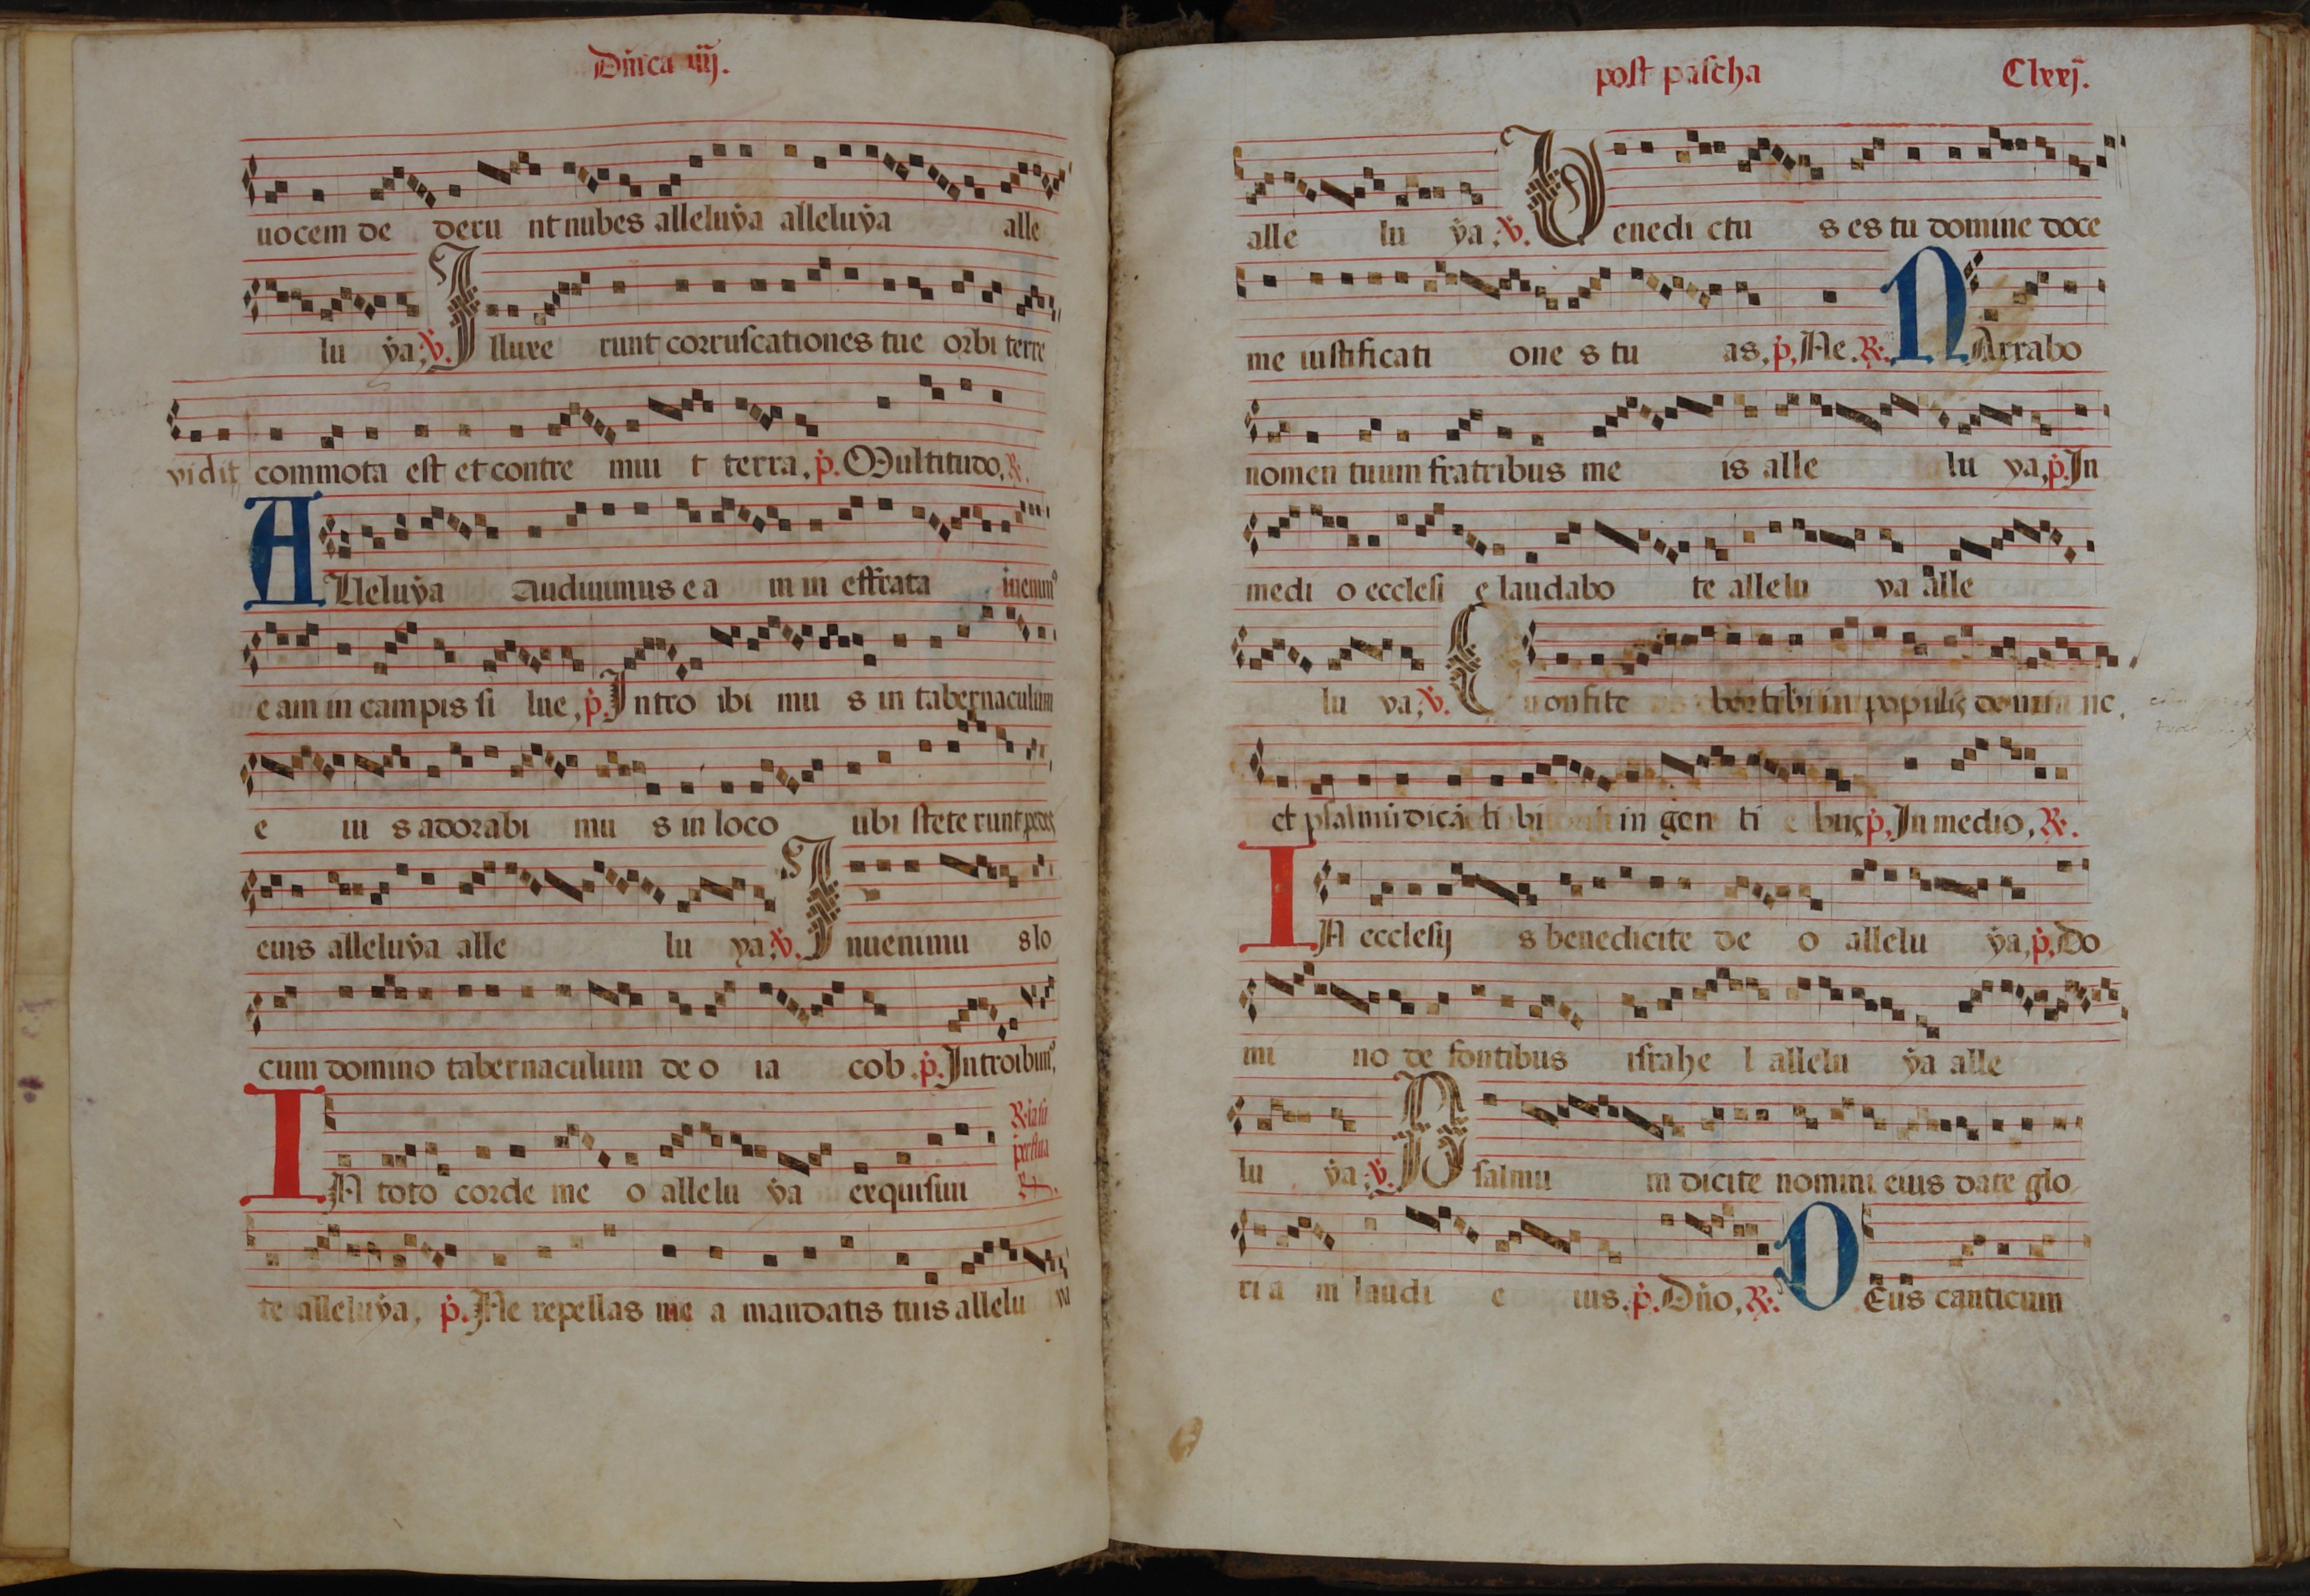 Dñica iiij.
uocem de deru nt nubes alleluẏa alleluẏa alle
lu ẏa. ℣. Illuxe runt corruscationes tue orbi terre
vidit commota est et contre mui t terra. p̃. Multitudo. ℟.
ALleluẏa audiuimus e a m in effrata inuenimꝰ
eam in campis si lue, p̃. Intro ibi mu s in tabernaculum
e iu s adorabi mu s in loco ubi stete runt pedes
eius alleluẏa alle lu ya. ℣. Inuenimu s lo
cum domino tabernaculum de o ia cob. p̃. Introibimꝰ.
IN toto corde me o allelu ẏa exquisiui
te alleluẏa, p̃. Ne repellas me a mandatis tuis allelu
post pascha Clxxj.
alle lu ẏa. ℣. Benedi ctu s es tu domine doce
me iustificati one s tu as. p̃. Ne. ℟. NArrabo
nomen tuum fratribus me is alle lu ya, p̃. In
medi o ecclesi e laudabo te allelu ya alle
lu ya. ℣. Confite bor tibi in populis domi ne,
et psalmū dicā ti bi in gen ti bus p̃. In medio, ℟.
IN ecclesij s benedicite de o allelu ẏa, p̃. Do
mi no de fontibus israhe l allelu ẏa alle
lu ẏa. ℣. Psalmu m dicite nomini eius date glo
ri a m laudi e ius. p̃. Dño, ℟. DEus canticum